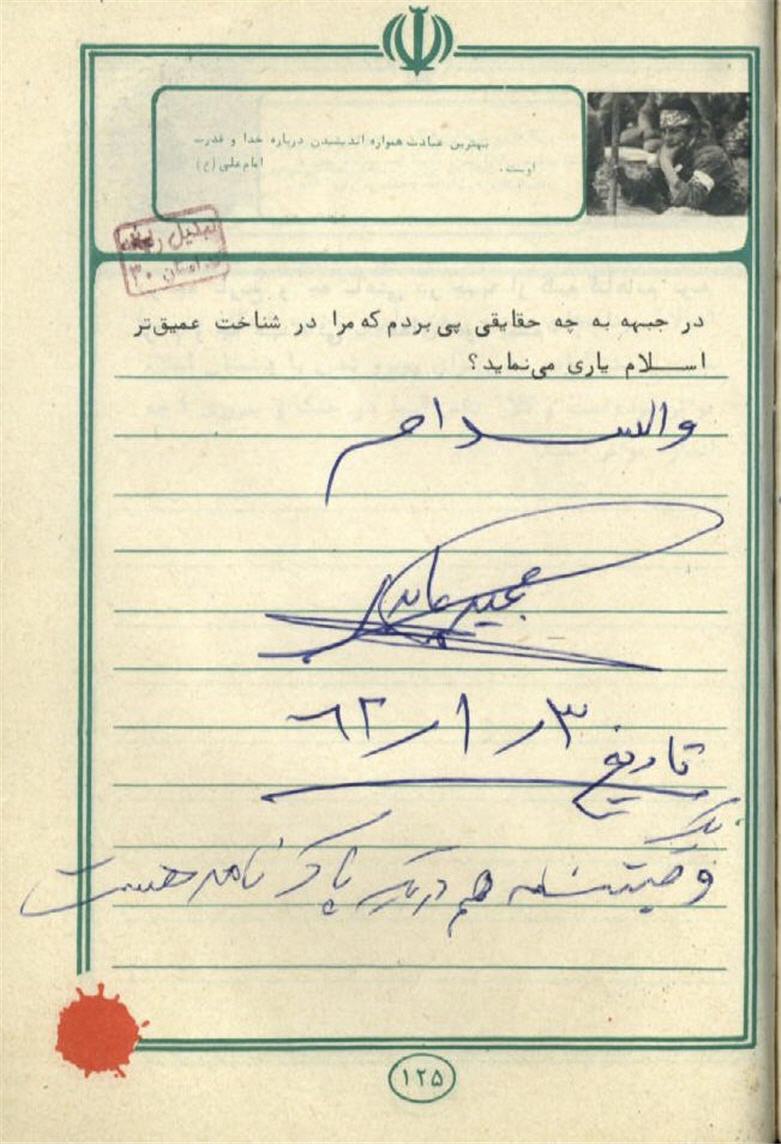 بهترین عبادت همواره اندیشیدن درباره خدا و قدرت
اوست. امام‌علی (ع)
تبدیل
استان ۳۰
در جبهه به چه حقایقی پی بردم که مرا در شناخت عمیق‌تر
اسلام یاری می‌نماید؟
والسلام
مجید
تاریخ ۳/۱/۶۲
یک
وصیتنامه هم در یک پاکت نامه هست
۱۲۵